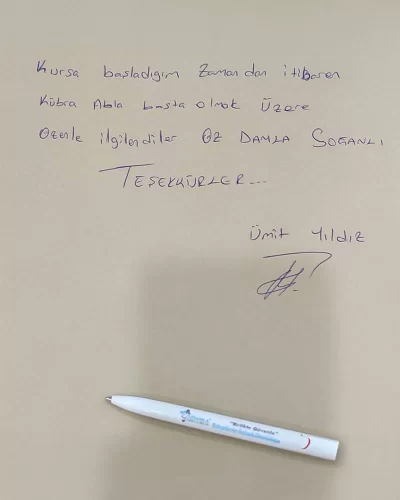 Kursa başladığım zamandan itibaren
Kübra Abla başta olmak üzere
özenle ilgilendiler ÖZ DAMLA SOĞANLI
TEŞEKKÜRLER...
Ümit Yıldız
"Birlikte Güvenle"